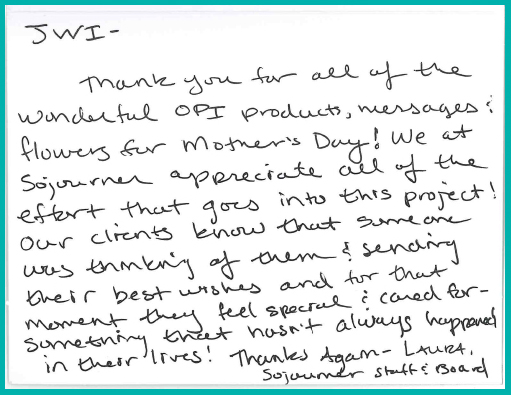 JWI-
Thank you for all of the
wonderful OPI products, messages &
flowers for Mother's Day! We at
Sojourner appreciate all of the
effort that goes into this project!
Our clients know that someone
was thinking of them & sending
their best wishes and for that
moment they feel special & cared for-
something that hasn't always happened
in their lives! Thanks Again- LAURA,
Sojourner staff & Board